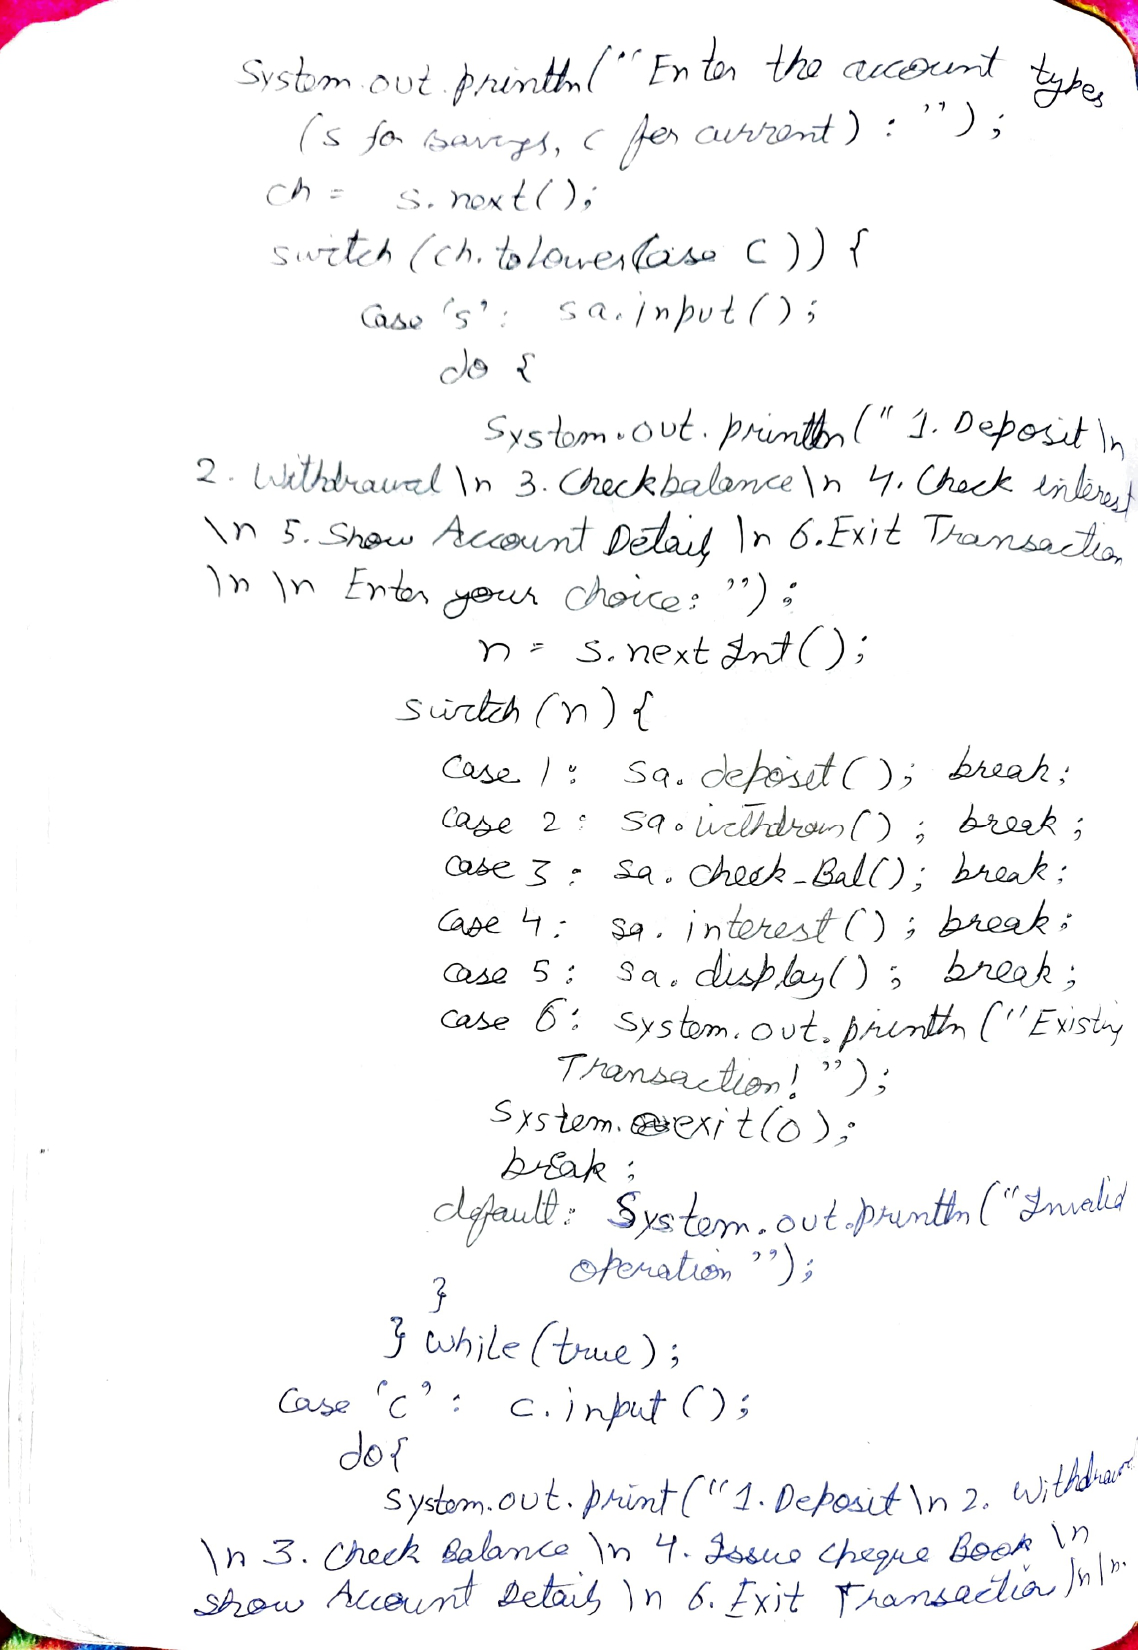 System.out.println("Enter the account types
(s for savings, c for current) : ");
ch = s.next();
switch (ch.toLowerCase C)) {
Case 's': sa.input();
do {
System.out.println(" 1. Deposit \n
2. Withdrawal \n 3. Check balance \n 4. Check interest
\n 5. Show Account Details \n 6. Exit Transaction
\n \n Enter your choice: ");
n = s.nextInt();
switch (n) {
Case 1: sa.deposit(); break;
Case 2: sa.withdraw(); break;
Case 3: sa.check_Bal(); break;
Case 4: sa.interest(); break;
Case 5: sa.display(); break;
Case 6: System.out.println("Existing
Transaction! ");
System.exit(0);
break;
default: System.out.println("Invalid
operation ");
}
} while (true);
Case 'c': c.input();
do {
System.out.print("1. Deposit \n 2. Withdrawal
\n 3. Check Balance \n 4. Issue Cheque Book \n
Show Account Details \n 6. Exit Transaction \n \n.